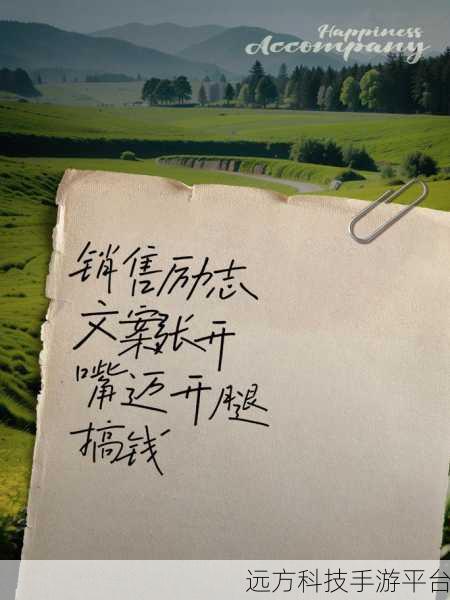 Happiness
Accompany
销售励志
文案张开
嘴迈开腿
搞钱
远方科技手游平台